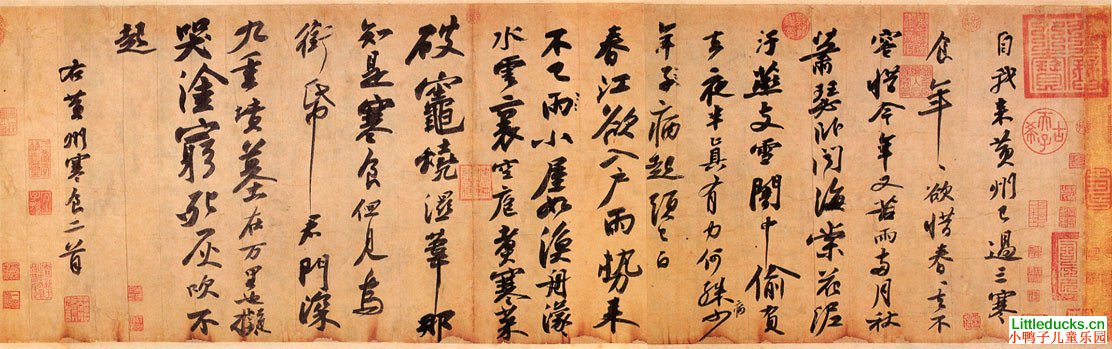 自我来黄州已過三寒
食年〻欲惜春〻去不
容惜今年又苦雨兩月秋
蕭瑟卧聞海棠花泥
汙燕支雪闇中偷負
去夜半真有力何殊少
年子病起頭已白
病
春江欲入户雨勢来
不已雨小屋如漁舟濛〻
水雲裏空庖煮寒菜
破竈燒濕葦那
知是寒食但見烏
銜帋君門深
九重墳墓在万里也擬
哭塗窮死灰吹不
起
右黄州寒食二首
古希天子
Littleducks.cn
小鸭子儿童乐园